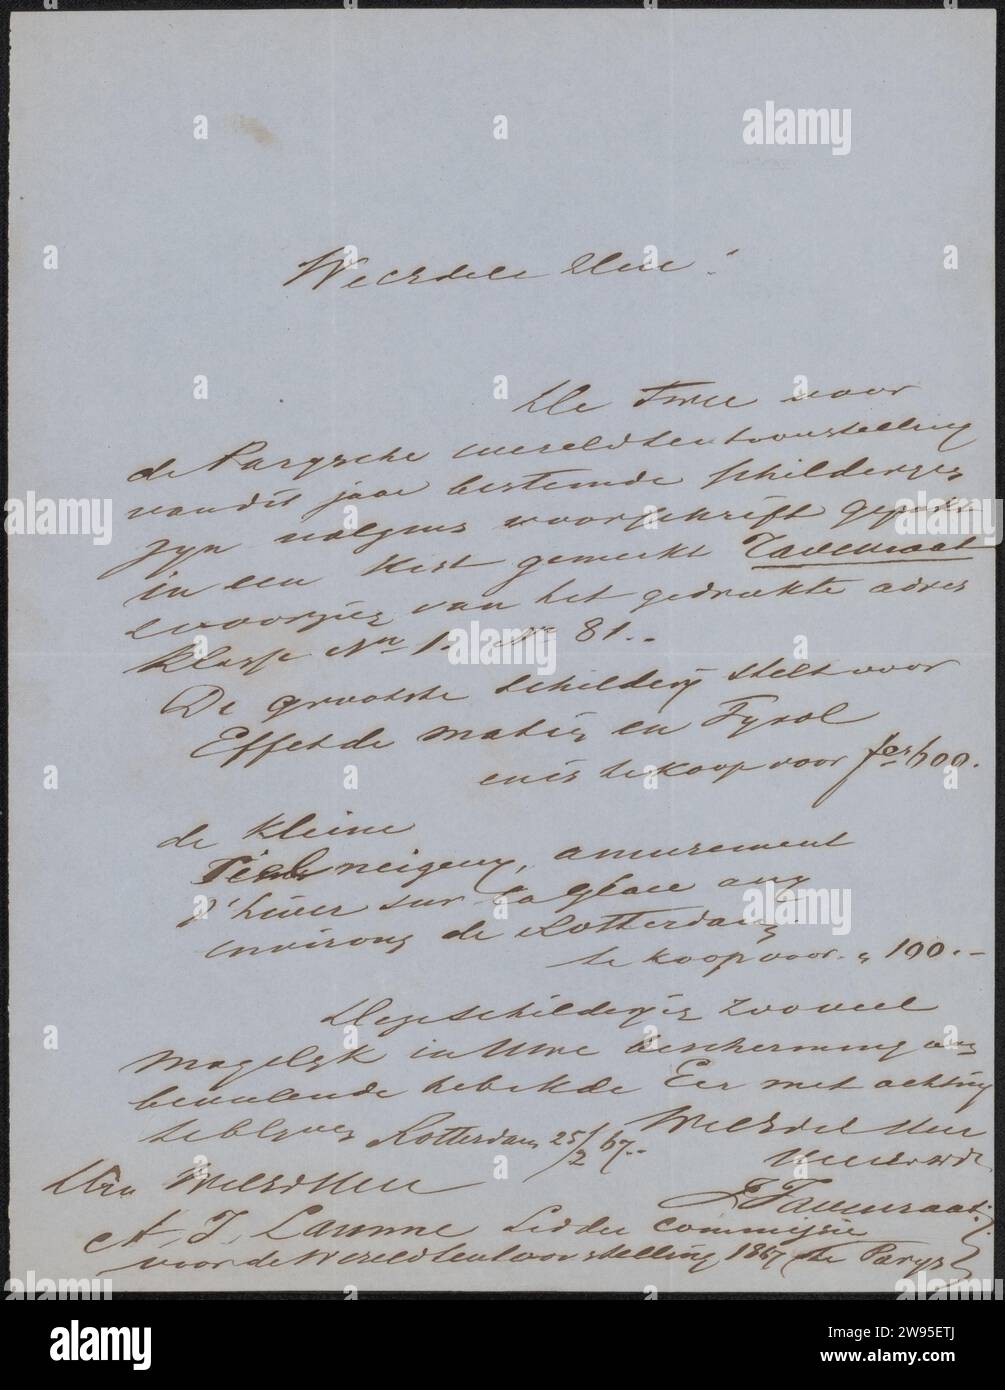 Weledele Heer!
De Twee voor
de Parysche wereldtentoonstelling
van dit jaar bestemde schilderyen
zyn volgens voorschrift gepakt
in een kist gemerkt Tavenraat
voorzien van het gedrukte adres
klasse No 1. No 81..
De grootste schildery stelt voor
Effet de matin en Tyrol
en is te koop voor 600.
de kleine
amusement
d'hiver sur la glace aux
environs de Rotterdam
te koop voor " 100.-
Deze schilderyen zooveel
mogelyk in Uwe bescherming aan
bevelende heb ik de Eer met achting
te blyven Rotterdam 25/2 67..
WelEdel Heer
J Tavenraat
Den WelEd Heer
A. J. Lamme Lid der Commissie
voor de Wereldtentoonstelling 1867 te Parys
alamy
Image ID: 2W95ETJ
www.alamy.com